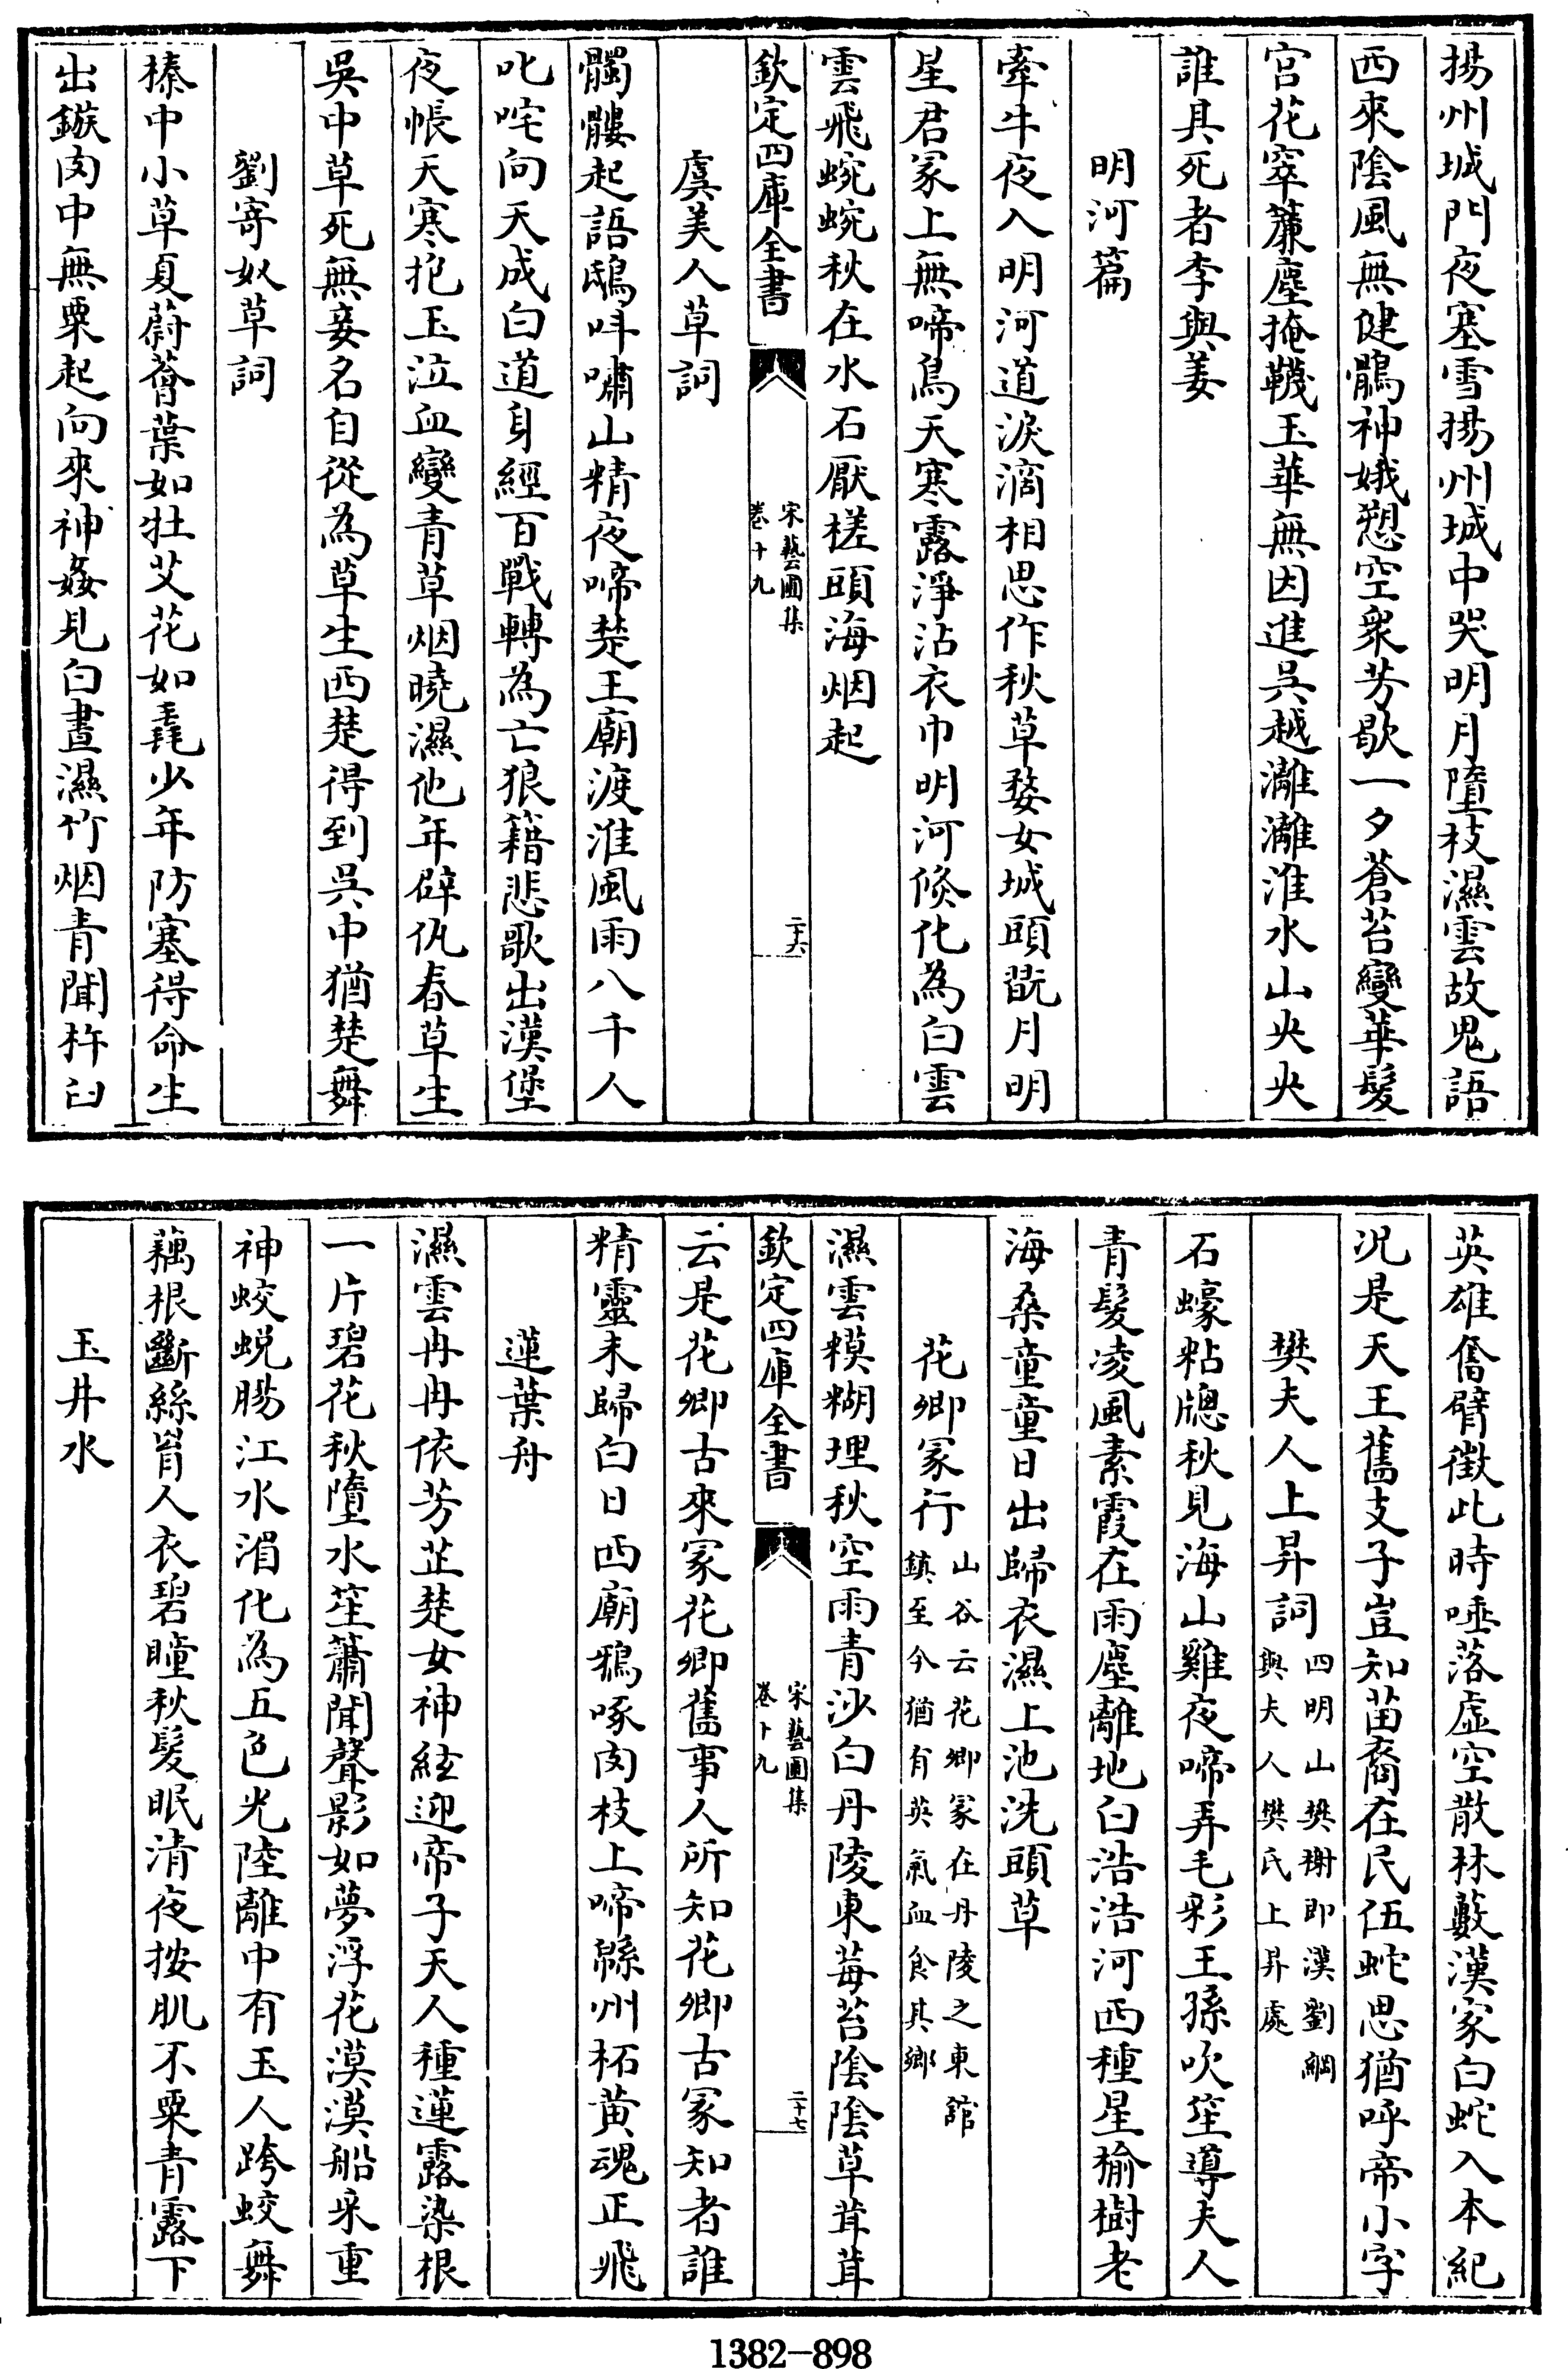 揚州城門夜塞雪揚州城中哭明月墮枝濕雲故鬼語
西來陰風無健鶻神娥愬空衆芳歇一夕蒼苔變華髮
宫花窣簾塵掩韈玉華無因進吳越灕灕淮水山央央
誰具死者李與姜
明河篇
牽牛夜入明河道淚滴相思作秋草婺女城頭翫月明
星君冢上無啼鳥天寒露淨沾衣巾明河倏化為白雲
雲飛蜿蜿秋在水石厭槎頭海烟起
欽定四庫全書
宋藝圃集
卷十九
二十六
虞美人草詞
髑髏起語鴟叫嘯山精夜啼楚王廟渡淮風雨八千人
叱咤向天成白道身經百戰轉為亡狼籍悲歌出漢堡
夜帳天寒抱玉泣血變青草烟曉濕他年辟仇春草生
吳中草死無妾名自從為草生西楚得到吳中猶楚舞
劉寄奴草詞
榛中小草夏蔚薈葉如牡艾花如毳少年防塞得命生
出鏃肉中無粟起向來神姦見白晝濕竹烟青聞杵臼
英雄奮臂徵此時唾落虛空散林藪漢家白蛇入本紀
况是天王舊支子豈知苗裔在民伍蛇思猶呼帝小字
樊夫人上昇詞
四明山樊榭即漢劉綱
與夫人樊氏上昇處
石蠔粘牕秋見海山雞夜啼弄毛彩王孫吹笙導夫人
青髮凌風素霞在雨塵離地白浩浩河西種星榆樹老
海桑童童日出歸衣濕上池洗頭草
花卿冢行
山谷云花卿冢在丹陵之東館
鎮至今猶有英氣血食其鄉
濕雲糢糊埋秋空雨青沙白丹陵東莓苔陰陰草茸茸
欽定四庫全書
宋藝圃集
卷十九
二十七
云是花卿古來冢花卿舊事人所知花卿古冢知者誰
精靈未歸白日西廟鴉啄肉枝上啼緜州柘黄魂正飛
蓮葉舟
濕雲冉冉依芳芷楚女神絃迎帝子天人種蓮露染根
一片碧花秋墮水笙簫聞聲影如夢浮花漠漠船采重
神蛟蜕腸江水湄化為五色光陸離中有玉人跨蛟舞
藕根斷絲罥人衣碧瞳秋髮眠清夜按肌不粟青露下
玉井水
1382-898